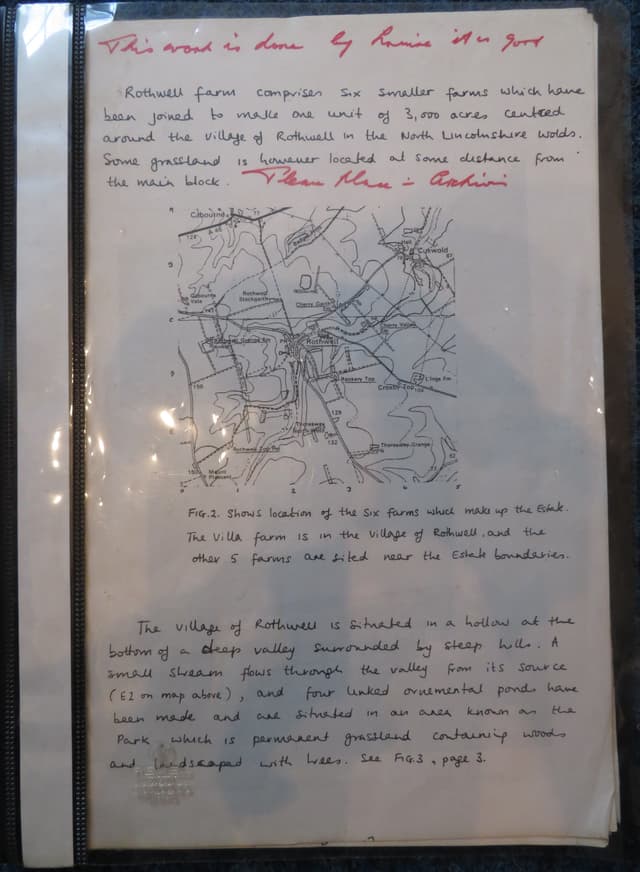 This work is done by Louise it is good
Rothwell farm comprises six smaller farms which have
been joined to make one unit of 3,000 acres centred
around the village of Rothwell in the North Lincolnshire Wolds.
Some grassland is however located at some distance from
the main block. Please Place in Archives
Cabourne
A 46
Cuxwold
Cabourne
Vale
Rothwell
Stackgarths
Cherry Garth
Cherry Valley
Rothwell
Rookery Top
Croxby Top
Lings Fm
129
132
Thoresway Grange
156
Mount
Pleasant
0 1 2 3 4 5
FIG.2. Shows location of the six farms which make up the Estate.
The Villa farm is in the village of Rothwell, and the
other 5 farms are sited near the Estate boundaries.
The village of Rothwell is situated in a hollow at the
bottom of a deep valley surrounded by steep hills. A
small stream flows through the valley from its source
(E2 on map above), and four linked ornemental ponds have
been made and are situated in an area known as the
Park which is permanent grassland containing woods
and landscaped with trees. See FIG.3, page 3.